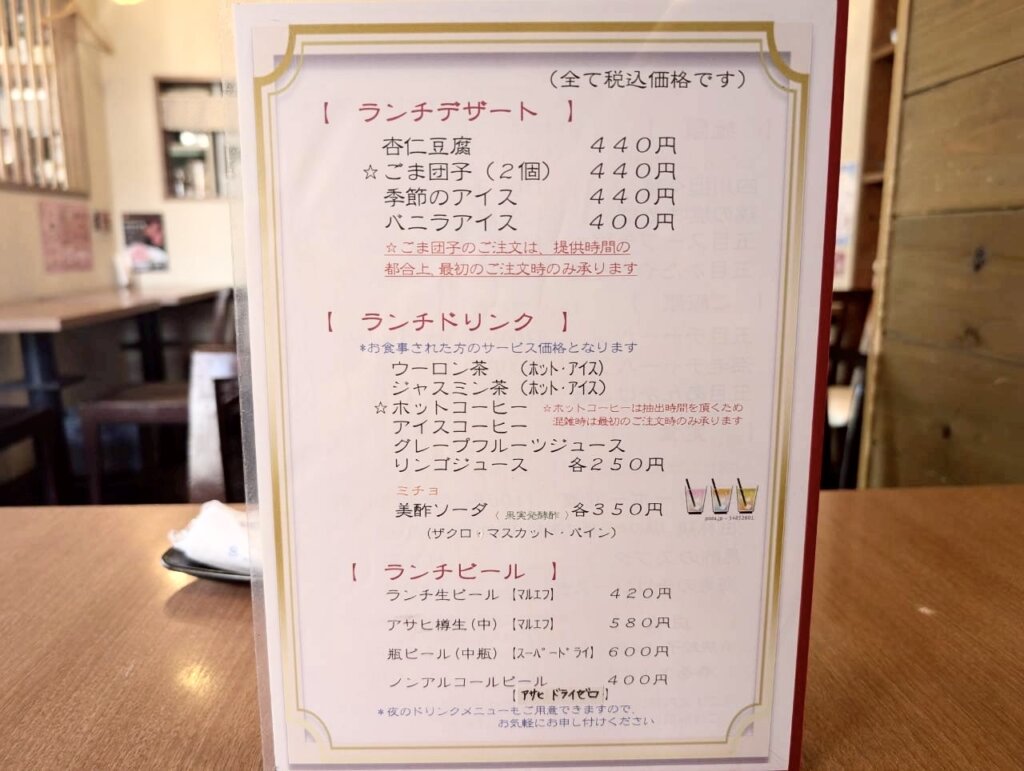 (全て税込価格です)
【 ランチデザート 】
杏仁豆腐 440円
☆ごま団子(2個) 440円
季節のアイス 440円
バニラアイス 400円
☆ごま団子のご注文は、提供時間の
都合上、最初のご注文時のみ承ります
【 ランチドリンク 】
*お食事された方のサービス価格となります
ウーロン茶 (ホット・アイス)
ジャスミン茶 (ホット・アイス)
☆ホットコーヒー ☆ホットコーヒーは抽出時間を頂くため
アイスコーヒー 混雑時は最初のご注文時のみ承ります
グレープフルーツジュース
リンゴジュース 各250円
ミチョ
美酢ソーダ(果実発酵酢)各350円
(ザクロ・マスカット・パイン)
【 ランチビール 】
ランチ生ビール【マルエフ】 420円
アサヒ樽生(中)【マルエフ】 580円
瓶ビール(中瓶)【スーパードライ】600円
ノンアルコールビール 400円
【アサヒ ドライゼロ】
*夜のドリンクメニューもご用意できますので、
お気軽にお申し付けください